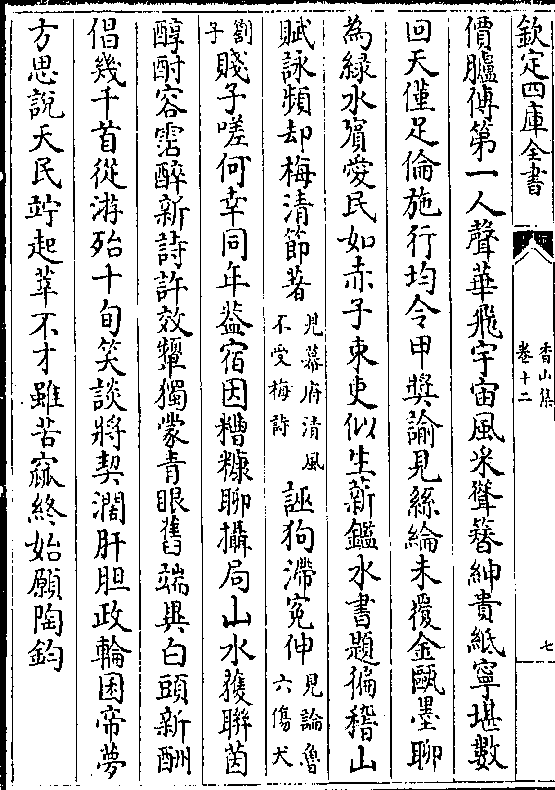 欽定四庫全書
香山集
卷十二
七
價臚傳第一人聲華飛宇宙風采聳簪紳貴紙寧堪數
回天僅足倫施行均令甲奬諭見絲綸未覆金甌墨聊
為緑水賓愛民如赤子束吏似生薪鑑水書題徧稽山
賦詠頻却梅清節著見幕府清風不受梅詩誣狗滯寃伸見論魯六傷犬
劄子賤子嗟何幸同年葢宿因糟糠聊攝局山水獲聯茵
醇酎容霑醉新詩許效顰獨蒙青眼舊端與白頭新酬
倡幾千首從游殆十旬笑談將契濶肝胆政輪囷帝夢
方思說天民竚起莘不才雖苦窳終始願陶鈞